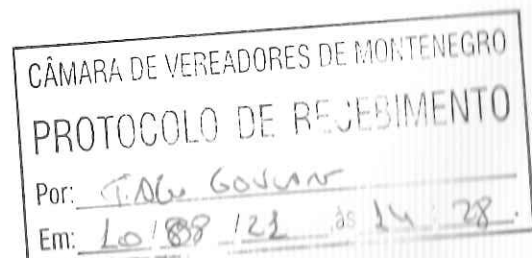 CÂMARA DE VEREADORES DE MONTENEGRO
PROTOCOLO DE RECEBIMENTO
Por:
Em: 10/08/21 às 14:28